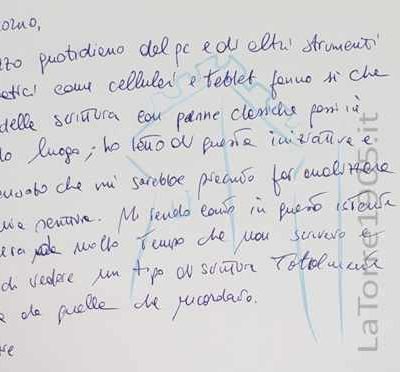 orno,
zzo quotidiano del pc e di altri strumenti
atici come cellulari e tablet fanno si che
della scrittura con penne classiche passi in
do luogo; ho letto di questa iniziativa e
ensato che mi sarebbe piaciuto far analizzare
mia scrittura. Mi rendo conto in questo istante
era molto tempo che non scrivevo e
di vedere un tipo di scrittura totalmente
a da quella che ricordavo.
re
LaTorre1905.it